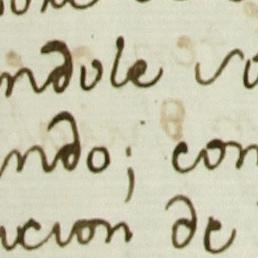 ndole so
ndo; con
ucion de